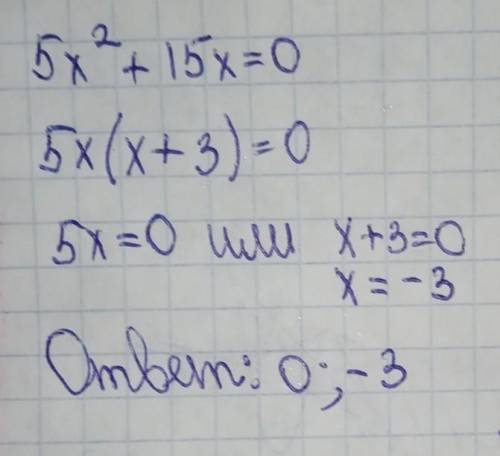 5x² + 15x = 0
5x(x + 3) = 0
5x = 0 или x + 3 = 0
x = -3
Ответ: 0; -3